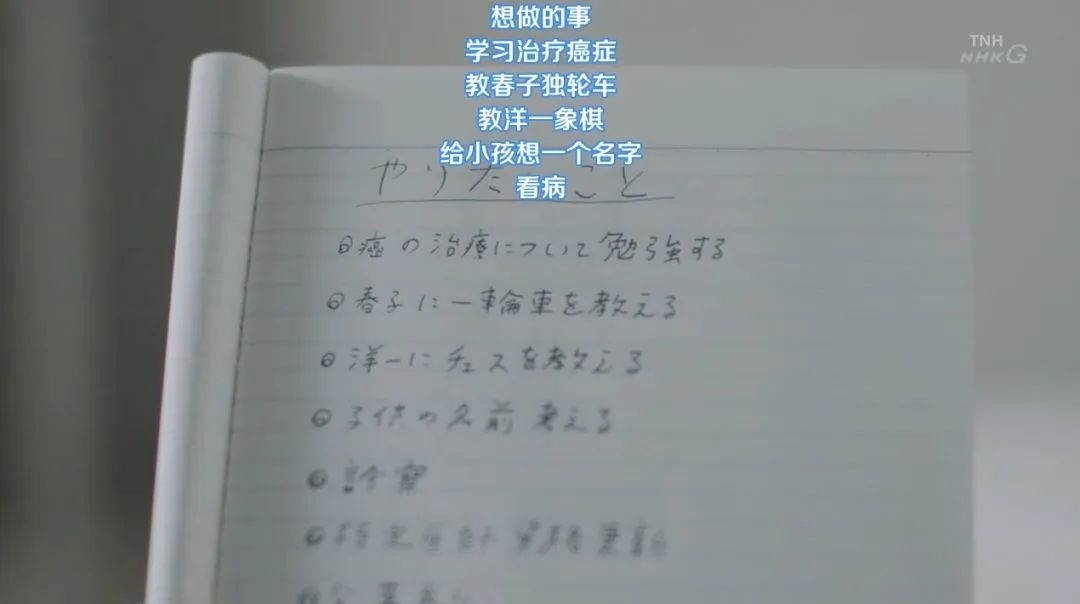 想做的事
学习治疗癌症
教春子独轮车
教洋一象棋
给小孩想一个名字
看病
TNH
NHK G
やりたいこと
癌の治療について勉強する
春子に一輪車を教える
洋一にチェスを教える
子供の名前考える
診察